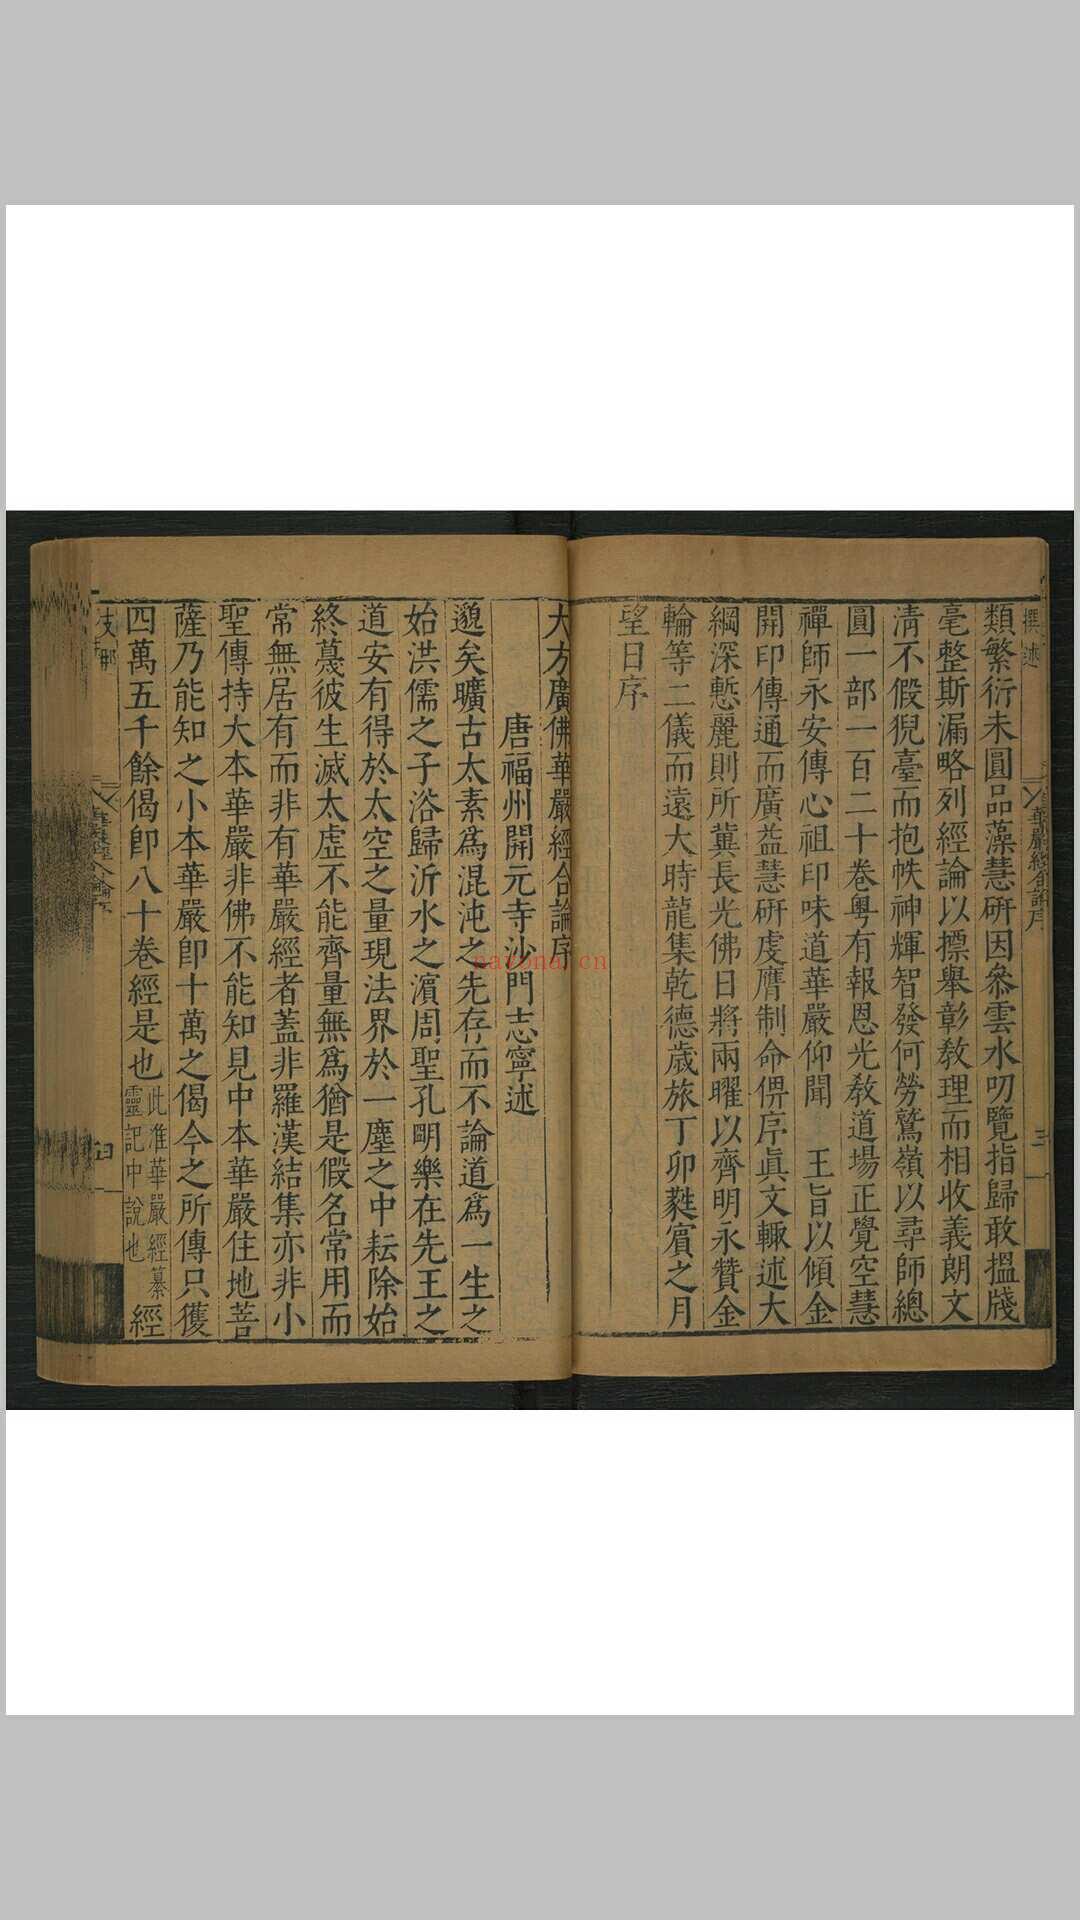 撰述
華嚴經合論序
三
類繁衍未圓品藻慧硏因叅雲水叨覽指歸敢搵牋
毫整斯漏略列經論以摽舉彰敎理而相收義朗文
淸不假猊臺而抱帙神輝智發何勞鷲嶺以尋師總
圓一部一百二十巻粤有報恩光敎道場正覺空慧
禪師永安傳心祖印味道華嚴仰聞　王旨以傾金
開印傳通而廣益慧硏虔膺制命俾序眞文輙述大
綱深慙麗則所冀長光佛日將兩曜以齊明永贊金
輪等二儀而遠大時龍集乾德歲旅丁卯蕤賓之月
望日序
大方廣佛華嚴經合論序
唐福州開元寺沙門志寧述
邈矣曠古太素爲混沌之先存而不論道爲一生之
始洪儒之子浴歸沂水之濵周聖孔明樂在先王之
道安有得於太空之量現法界於一塵之中耘除始
終蔑彼生滅太虛不能齊量無爲猶是假名常用而
常無居有而非有華嚴經者蓋非羅漢結集亦非小
聖傳持大本華嚴非佛不能知見中本華嚴住地菩
薩乃能知之小本華嚴卽十萬之偈今之所傳只獲
四萬五千餘偈卽八十巻經是也此准華嚴經纂靈記中說也經
navona.cn